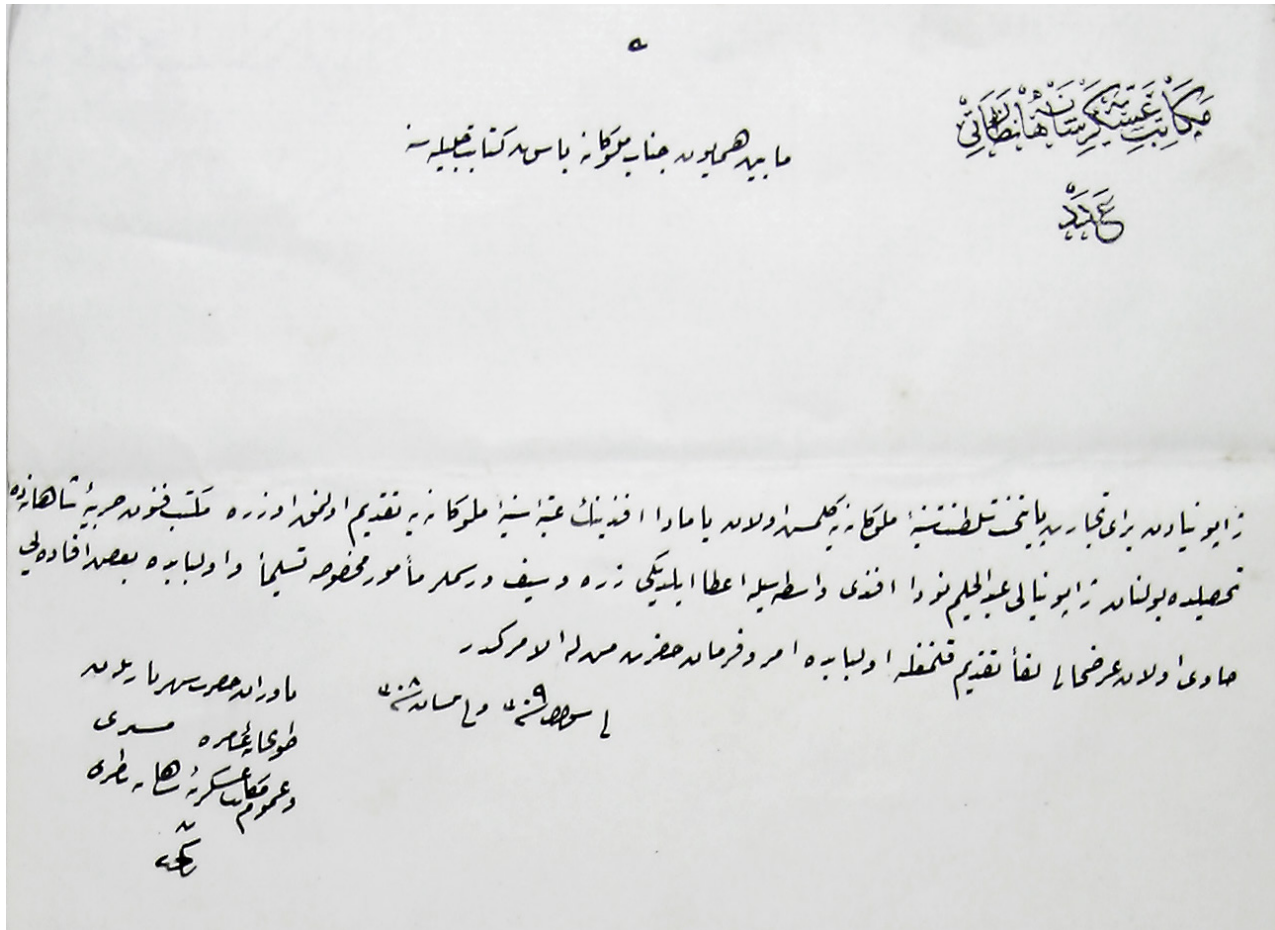 مكاتب عسكريه شاهانه نظارتى
عدد
مابين همايون جناب ملوكانه باش كتابت جليله سنه
ژاپونيادن براى تجارت پايتخت سلطنت سنيه ملوكانه يه كلمش اولان يامادا افندينك عتبه سنيه ملوكانه يه تقديم اولنمق اوزره مكتب فنون حربيه شاهانه ده
تحصيلده بولنان ژاپونيالى عبد الحليم نودا افندى واسطه سيله اعطا ايلديكى زره و سيف و رسملر مأمور مخصوصه تسليماً و اولبابده بعض افاده يى
حاوى اولان عرضحالى لفاً تقديم قلنمغله اولبابده امر و فرمان حضرت من له الامركدر
فى سنه ٣٠٩ و فى نيسان سنه ٣٠٨
ياوران حضرت شهريارى دن
طوپخانه عامره مشيرى
و عموم مكاتب عسكريه شاهانه ناظرى